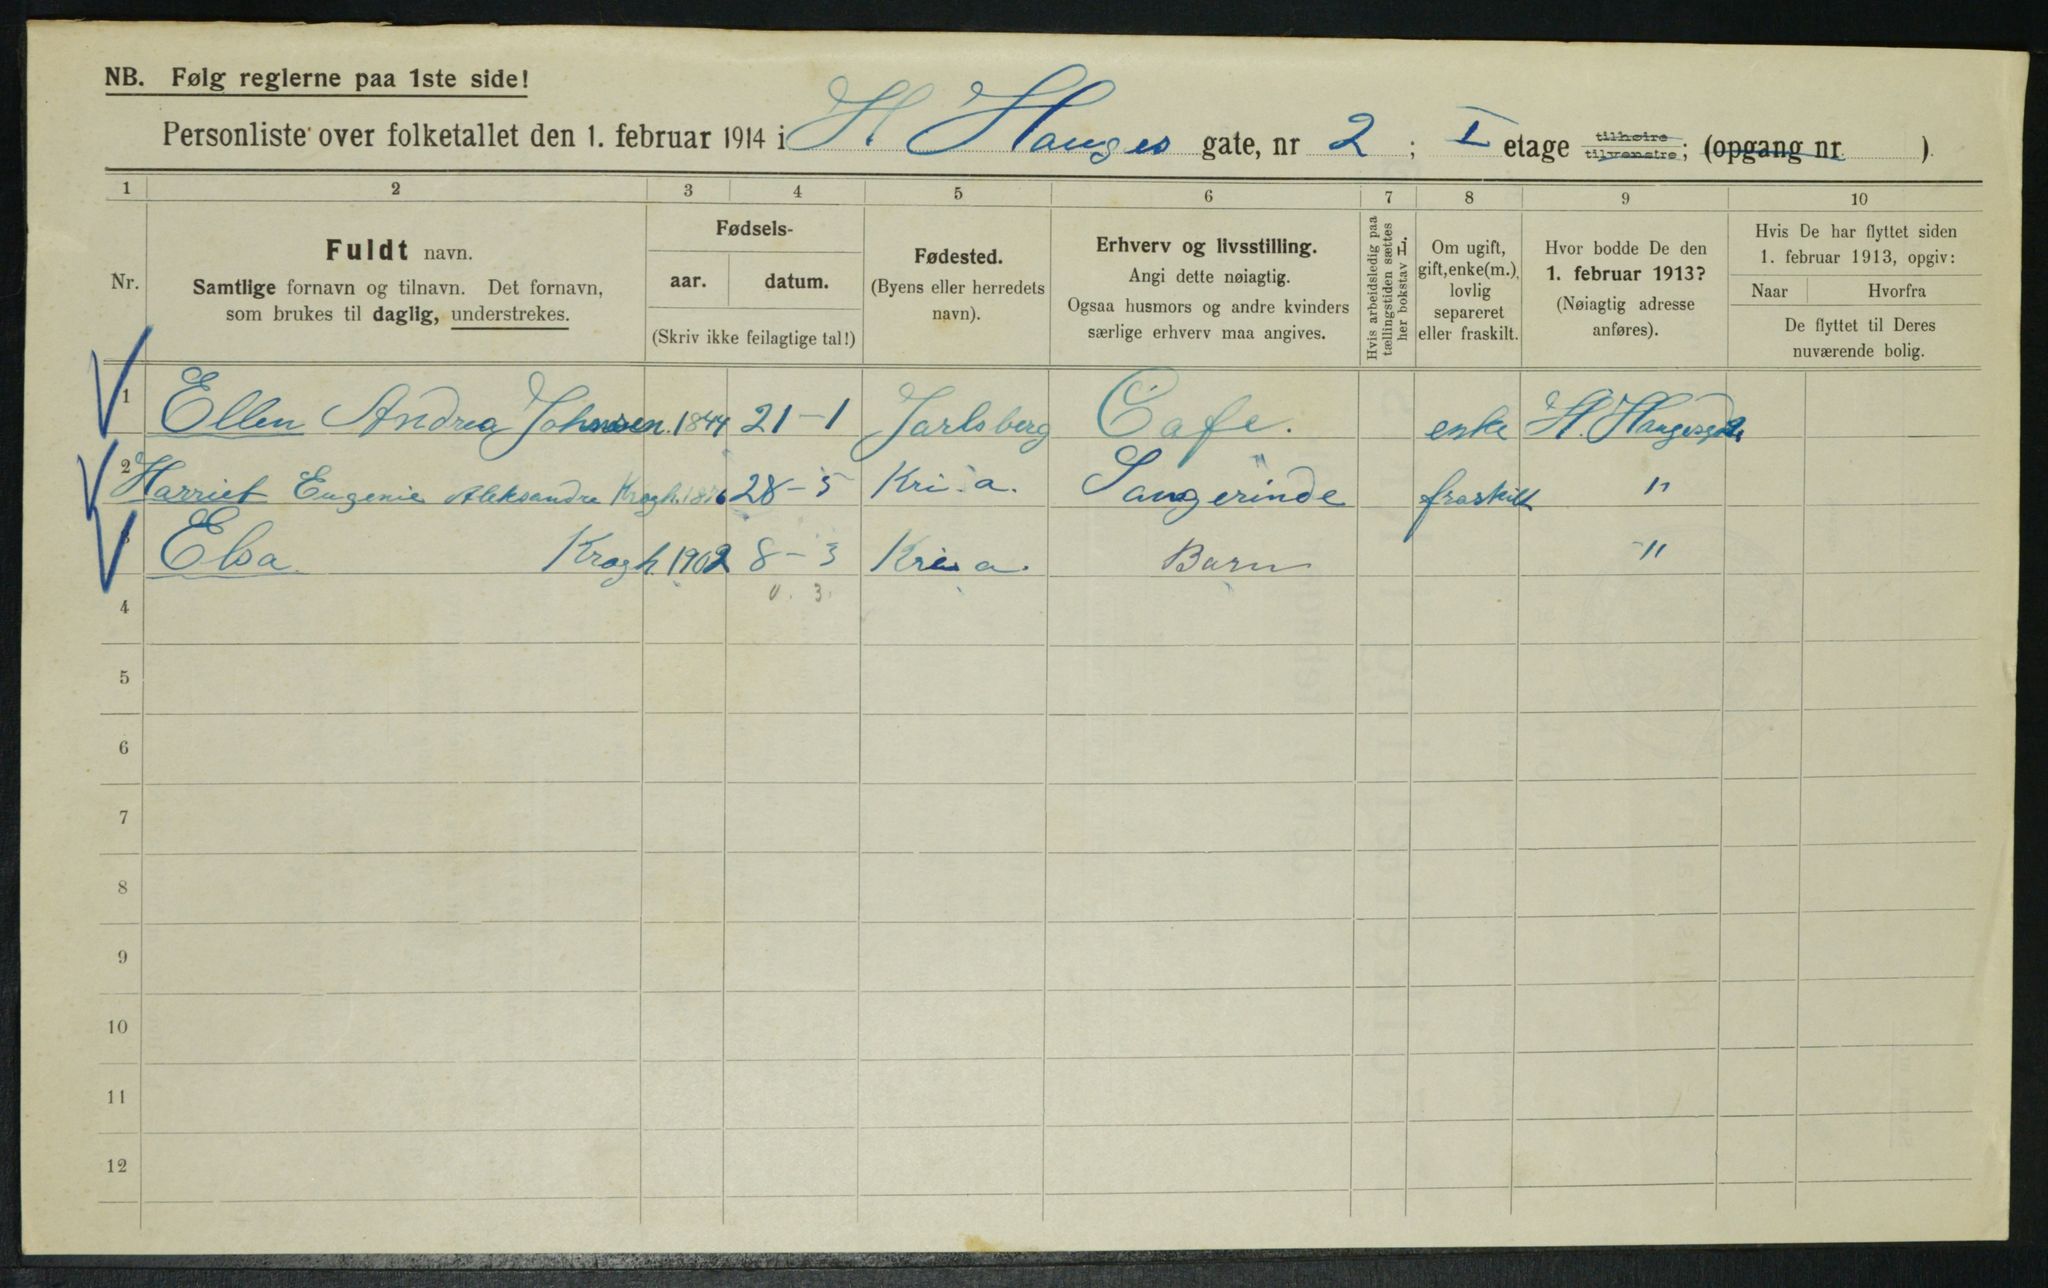 NB. Følg reglerne paa 1ste side!
Personliste over folketallet den 1. februar 1914 i H Hauges gate, nr 2; I etage tilhøire tilvenstre; (opgang nr )
1 2 3 4 5 6 7 8 9 10
Nr.
Fuldt navn.
Samtlige fornavn og tilnavn. Det fornavn,
som brukes til daglig, understrekes.
Fødsels-
aar. datum.
(Skriv ikke feilagtige tal!)
Fødested.
(Byens eller herredets
navn).
Erhverv og livsstilling.
Angi dette nøiagtig.
Ogsaa husmors og andre kvinders
særlige erhverv maa angives.
Hvis arbeidsledig paa
tællingstiden sættes
her bokstav L.
Om ugift,
gift, enke(m.),
lovlig
separeret
eller fraskilt.
Hvor bodde De den
1. februar 1913?
(Nøiagtig adresse
anføres).
Hvis De har flyttet siden
1. februar 1913, opgiv:
Naar Hvorfra
De flyttet til Deres
nuværende bolig.
1 Ellen Andrea Johnsen. 1844 21-1 Jarlsberg Cafe. enke H. Haugesgd 2
2 Harriet Eugenie Aleksandre Krogh. 1876 28-5 Kri-a. Sangerinde fraskilt "
3 Elsa Krogh. 1902 8-3 Kria. Barn -"
v. 3.
4
5
6
7
8
9
10
11
12